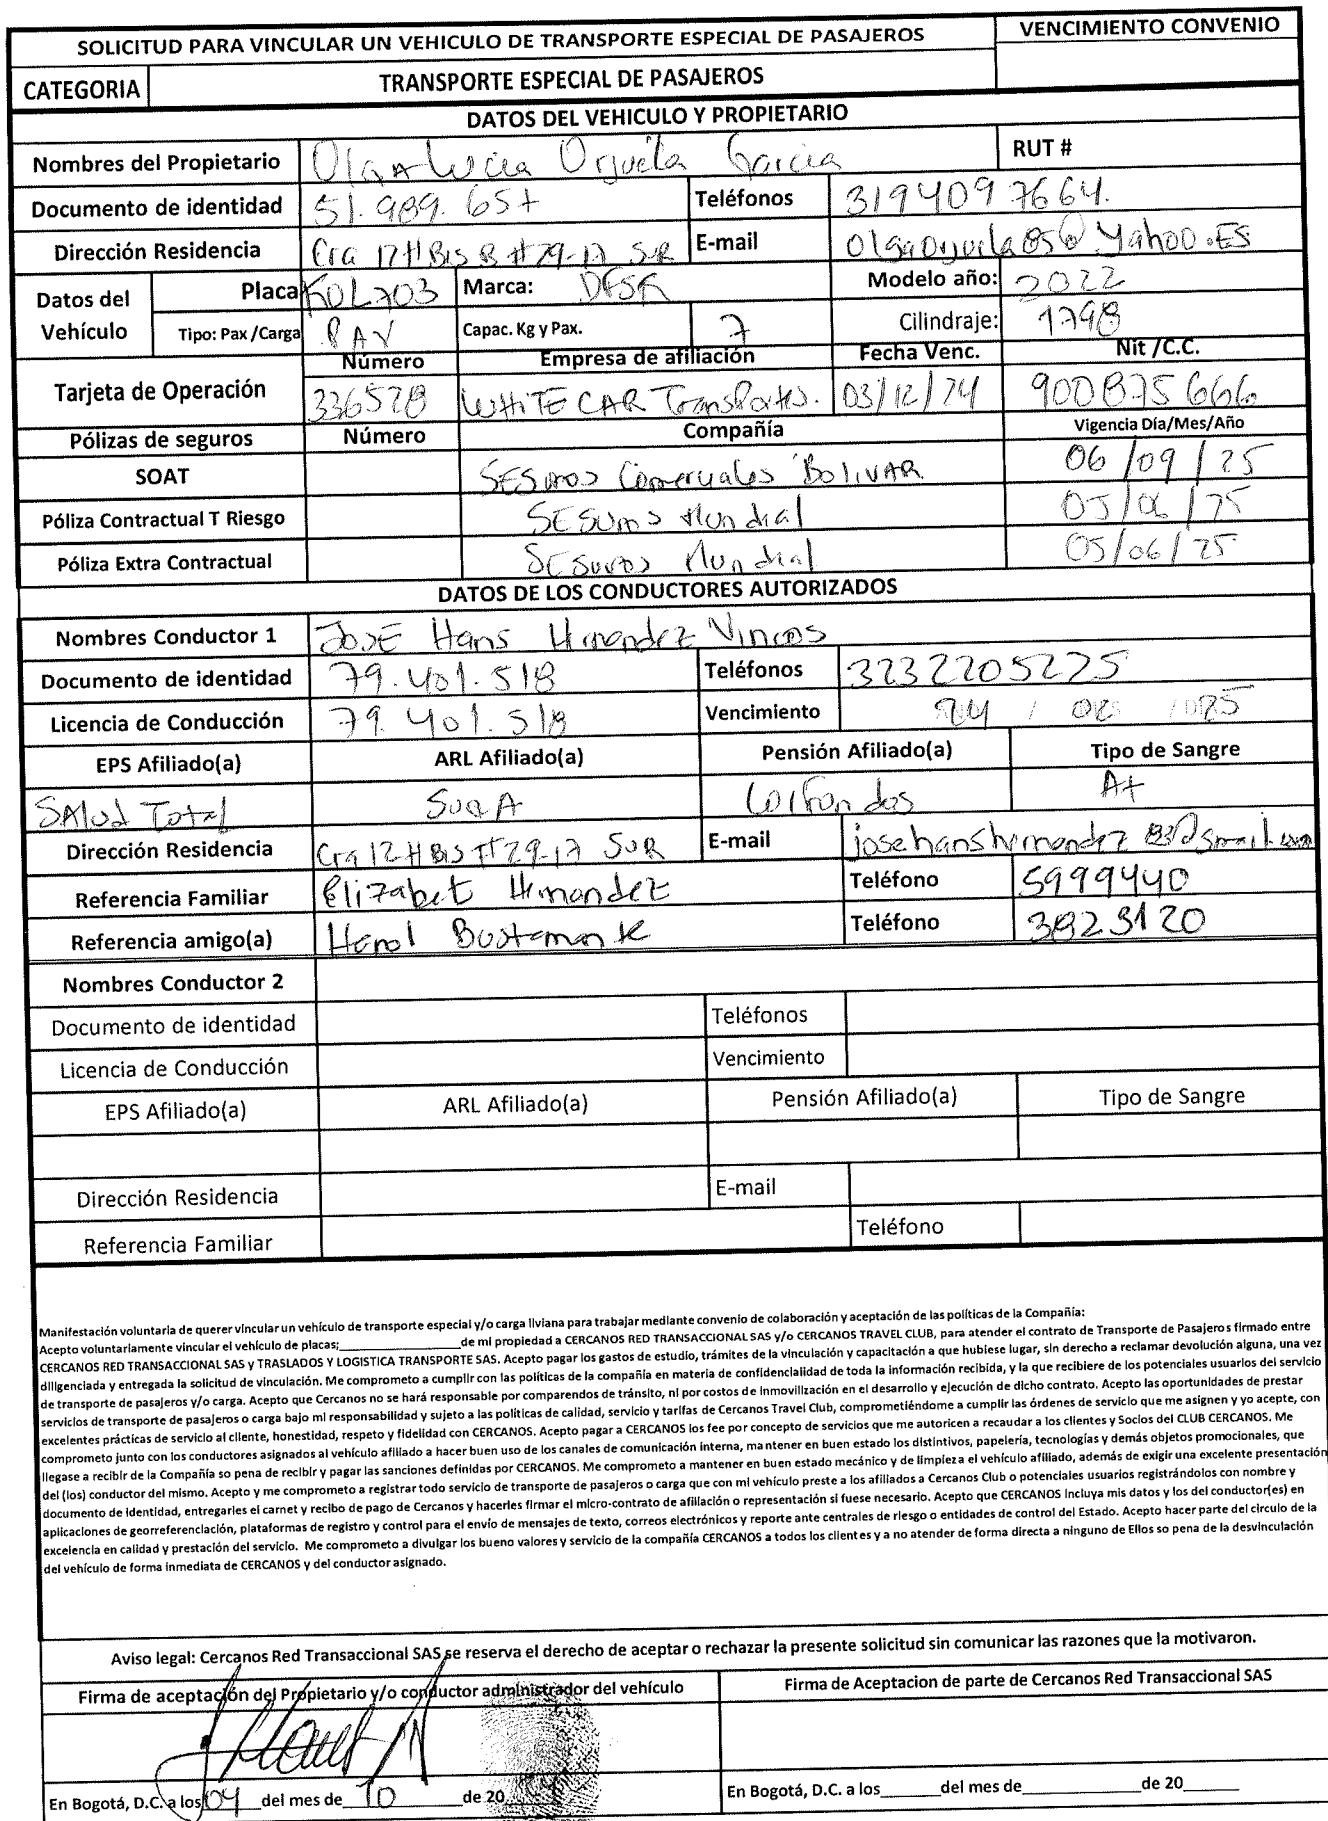 SOLICITUD PARA VINCULAR UN VEHICULO DE TRANSPORTE ESPECIAL DE PASAJEROS VENCIMIENTO CONVENIO
CATEGORIA TRANSPORTE ESPECIAL DE PASAJEROS
DATOS DEL VEHICULO Y PROPIETARIO
Nombres del Propietario Olga Lucia Orjuela Garcia RUT #
Documento de identidad 51.989.657 Teléfonos 3194097664.
Dirección Residencia Cra 12 H Bis B # 29-17 SUR E-mail @Yahoo.ES
Datos del Vehículo Placa KOL703 Marca: DFSK Modelo año: 2022
Tipo: Pax /Carga PAX Capac. Kg y Pax. 7 Cilindraje: 1798
Número Empresa de afiliación Fecha Venc. Nit /C.C.
Tarjeta de Operación 336528 WHITE CAR Transportes. 03/12/24 900875666
Pólizas de seguros Número Compañía Vigencia Día/Mes/Año
SOAT Seguros Comerciales BOLIVAR 06/09/25
Póliza Contractual T Riesgo Seguros Mundial 05/06/25
Póliza Extra Contractual Seguros Mundial 05/06/25
DATOS DE LOS CONDUCTORES AUTORIZADOS
Nombres Conductor 1 JOSE Hans Hernandez
Documento de identidad 79.401.518 Teléfonos 3232205225
Licencia de Conducción 79.401.518 Vencimiento
EPS Afiliado(a) ARL Afiliado(a) Pensión Afiliado(a) Tipo de Sangre
SAlud Total SURA Colfondos A+
Dirección Residencia Cra 12 H BIS # 29-17 SUR E-mail
Referencia Familiar Elizabet Hernandez Teléfono 5999440
Referencia amigo(a) Harol Bustamante Teléfono 3823120
Nombres Conductor 2
Documento de identidad Teléfonos
Licencia de Conducción Vencimiento
EPS Afiliado(a) ARL Afiliado(a) Pensión Afiliado(a) Tipo de Sangre
Dirección Residencia E-mail
Referencia Familiar Teléfono
Manifestación voluntaria de querer vincular un vehículo de transporte especial y/o carga liviana para trabajar mediante convenio de colaboración y aceptación de las políticas de la Compañía:
Acepto voluntariamente vincular el vehículo de placas;____________________de mi propiedad a CERCANOS RED TRANSACCIONAL SAS y/o CERCANOS TRAVEL CLUB, para atender el contrato de Transporte de Pasajeros firmado entre
CERCANOS RED TRANSACCIONAL SAS y TRASLADOS Y LOGISTICA TRANSPORTE SAS. Acepto pagar los gastos de estudio, trámites de la vinculación y capacitación a que hubiese lugar, sin derecho a reclamar devolución alguna, una vez
diligenciada y entregada la solicitud de vinculación. Me comprometo a cumplir con las políticas de la compañía en materia de confidencialidad de toda la información recibida, y la que recibiere de los potenciales usuarios del servicio
de transporte de pasajeros y/o carga. Acepto que Cercanos no se hará responsable por comparendos de tránsito, ni por costos de inmovilización en el desarrollo y ejecución de dicho contrato. Acepto las oportunidades de prestar
servicios de transporte de pasajeros o carga bajo mi responsabilidad y sujeto a las políticas de calidad, servicio y tarifas de Cercanos Travel Club, comprometiéndome a cumplir las órdenes de servicio que me asignen y yo acepte, con
excelentes prácticas de servicio al cliente, honestidad, respeto y fidelidad con CERCANOS. Acepto pagar a CERCANOS los fee por concepto de servicios que me autoricen a recaudar a los clientes y Socios del CLUB CERCANOS. Me
comprometo junto con los conductores asignados al vehículo afiliado a hacer buen uso de los canales de comunicación interna, mantener en buen estado los distintivos, papelería, tecnologías y demás objetos promocionales, que
llegase a recibir de la Compañía so pena de recibir y pagar las sanciones definidas por CERCANOS. Me comprometo a mantener en buen estado mecánico y de limpieza el vehículo afiliado, además de exigir una excelente presentación
del (los) conductor del mismo. Acepto y me comprometo a registrar todo servicio de transporte de pasajeros o carga que con mi vehículo preste a los afiliados a Cercanos Club o potenciales usuarios registrándolos con nombre y
documento de identidad, entregarles el carnet y recibo de pago de Cercanos y hacerles firmar el micro-contrato de afiliación o representación si fuese necesario. Acepto que CERCANOS incluya mis datos y los del conductor(es) en
aplicaciones de georreferenciación, plataformas de registro y control para el envío de mensajes de texto, correos electrónicos y reporte ante centrales de riesgo o entidades de control del Estado. Acepto hacer parte del circulo de la
excelencia en calidad y prestación del servicio. Me comprometo a divulgar los bueno valores y servicio de la compañía CERCANOS a todos los clientes y a no atender de forma directa a ninguno de Ellos so pena de la desvinculación
del vehículo de forma inmediata de CERCANOS y del conductor asignado.
Aviso legal: Cercanos Red Transaccional SAS se reserva el derecho de aceptar o rechazar la presente solicitud sin comunicar las razones que la motivaron.
Firma de aceptación del Propietario y/o conductor administrador del vehículo Firma de Aceptacion de parte de Cercanos Red Transaccional SAS
En Bogotá, D.C. a los 04 del mes de 10 de 20 En Bogotá, D.C. a los______del mes de____________de 20_____